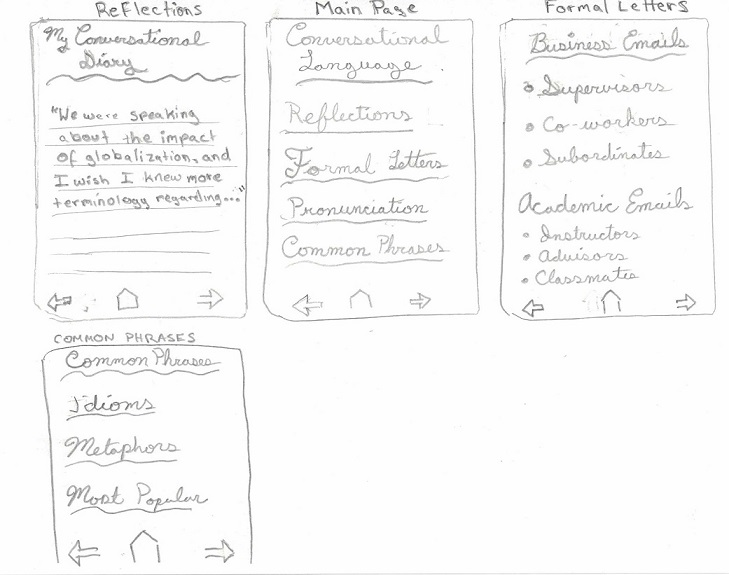 Reflections
My Conversational
Diary
"We were speaking
about the impact
of globalization, and
I wish I knew more
terminology regarding..."
Main Page
Conversational
Language
Reflections
Formal Letters
Pronunciation
Common Phrases
Formal Letters
Business Emails
Supervisors
Co-workers
Subordinates
Academic Emails
Instructors
Advisors
Classmates
COMMON PHRASES
Common Phrases
Idioms
Metaphors
Most Popular